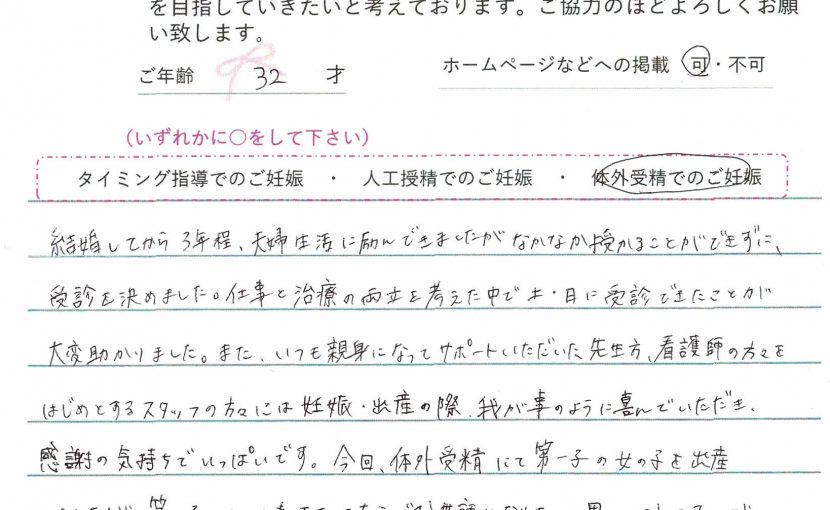 を目指していきたいと考えております。ご協力のほどよろしくお願
い致します。
ご年齢 32 才 ホームページなどへの掲載 可・不可
(いずれかに○をして下さい)
タイミング指導でのご妊娠 ・ 人工授精でのご妊娠 ・ 体外受精でのご妊娠
結婚してから3年程、夫婦生活に励んできましたがなかなか授かることができずに、
受診を決めました。仕事と治療の両立を考えた中で土・日に受診できたことが
大変助かりました。また、いつも親身になってサポートいただいた先生方、看護師の方々を
はじめとするスタッフの方々には妊娠・出産の際、我が事のように喜んでいただき、
感謝の気持ちでいっぱいです。今回、体外受精にて第一子の女の子を出産